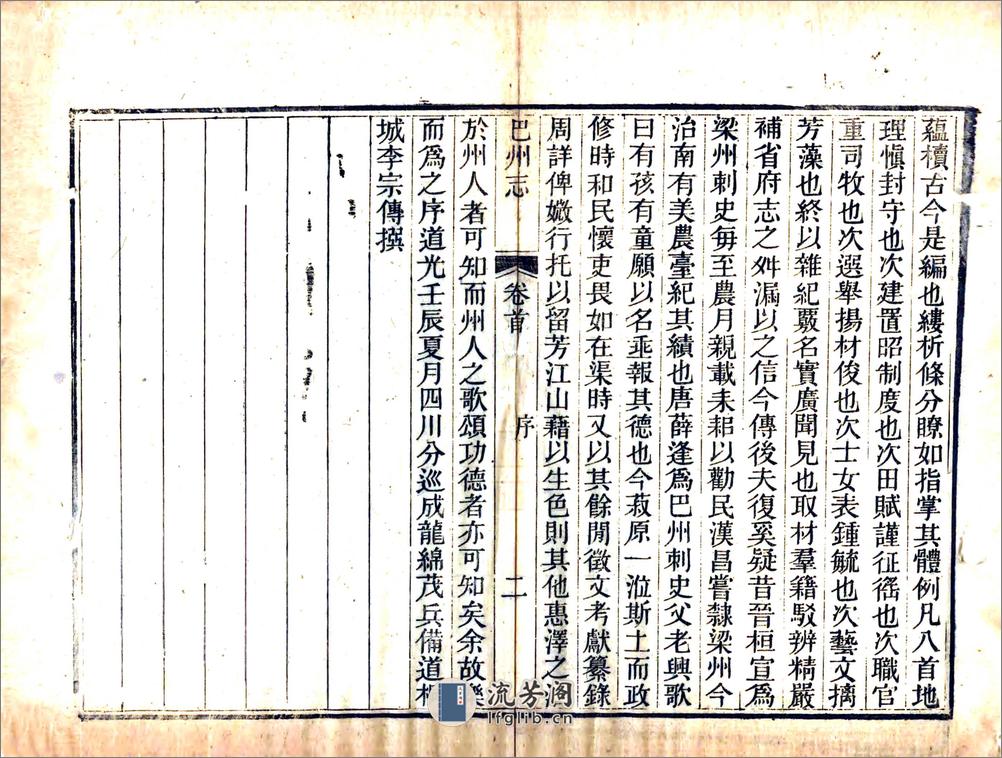 蘊櫝古今是編也縷析條分瞭如指掌其體例凡八首地
理愼封守也次建置昭制度也次田賦謹征徭也次職官
重司牧也次選舉揚材俊也次士女表鍾毓也次藝文摛
芳藻也終以雜紀覈名實廣聞見也取材羣籍駁辨精嚴
補省府志之舛漏以之信今傳後夫復奚疑昔晉桓宣爲
梁州刺史每至農月親載耒耜以勸民漢昌嘗隸梁州今
治南有美農臺紀其績也唐薛逢爲巴州刺史父老興歌
曰有孩有童願以名垂報其德也今菽原一涖斯土而政
修時和民懷吏畏如在渠時又以其餘閒徵文考獻纂錄
周詳俾媺行托以留芳江山藉以生色則其他惠澤之
巴州志 卷首 序 二
於州人者可知而州人之歌頌功德者亦可知矣余故樂
而爲之序道光壬辰夏月四川分巡成龍綿茂兵備道桐
城李宗傳撰
流芳阁
lfglib.cn